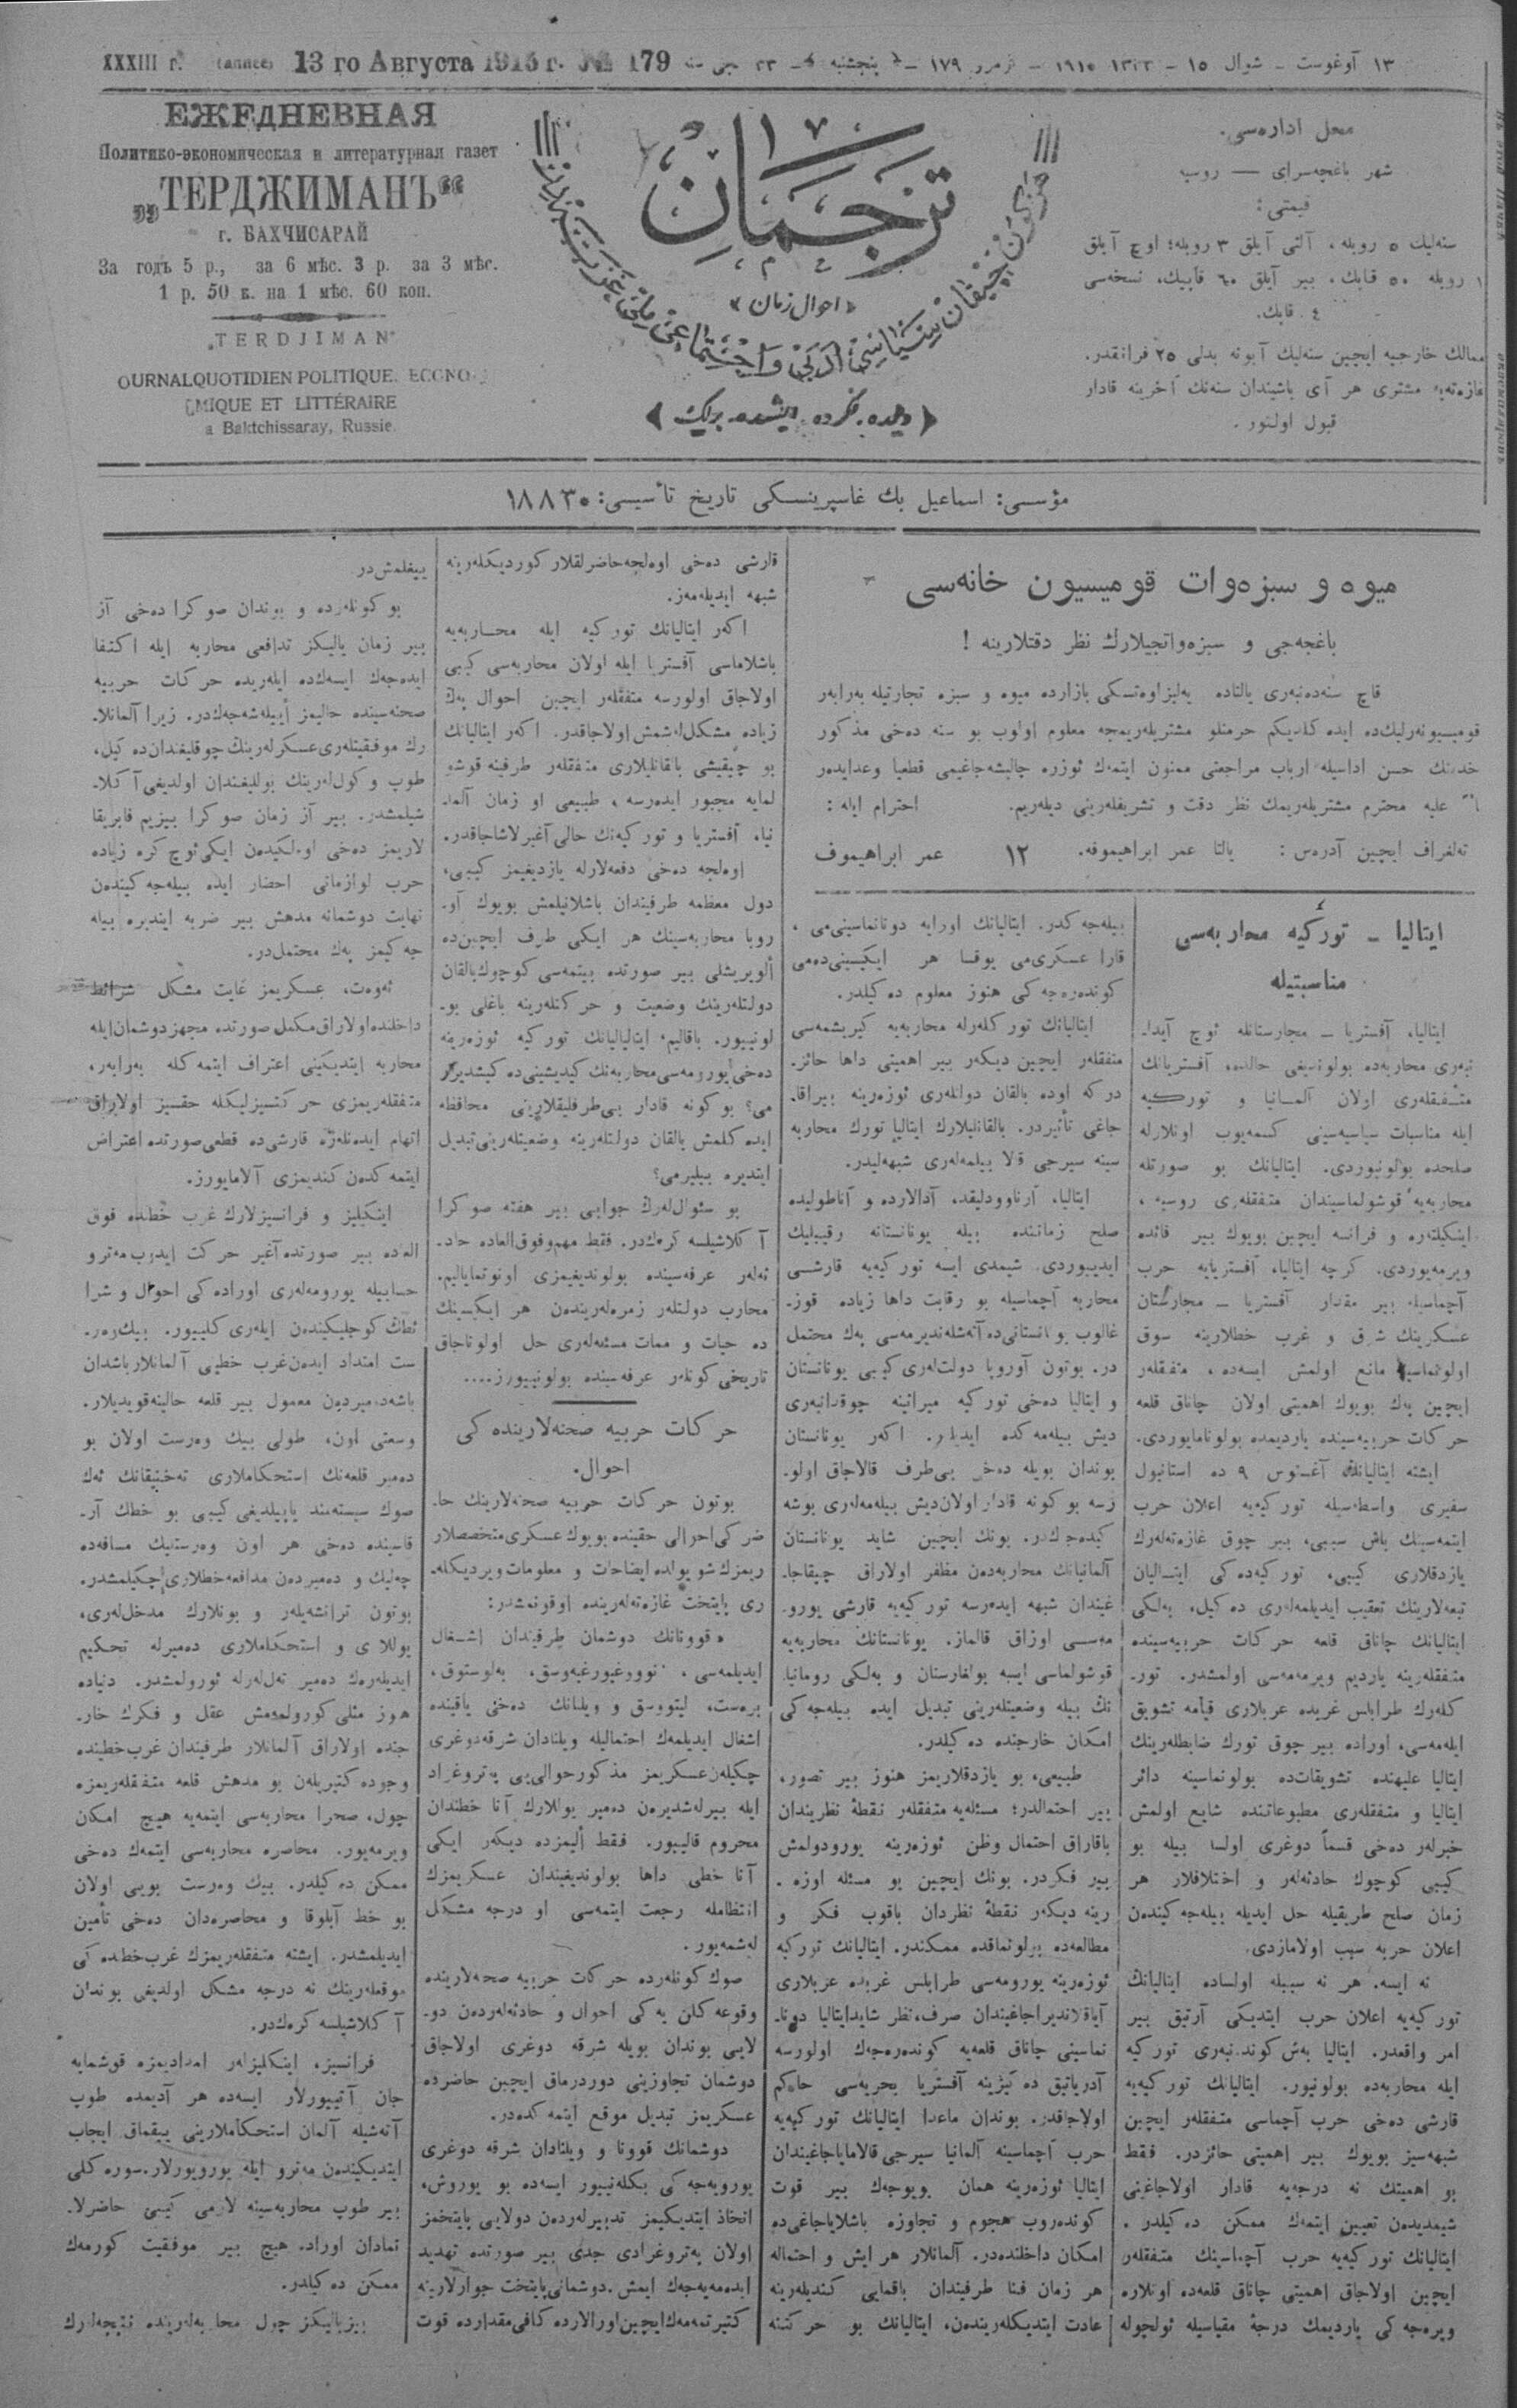 XXXIII г. (année) 13 го Августа 1915 г. № 179
١٣ آوغوست - شوال ١٥ - ١٣٣٣ ١٩١٥ - نومرو ١٧٩ - پنجشنبه - ٣٣ جی سنه
ЕЖЕДНЕВНАЯ
Политико-экономическая и литературная газет
„ТЕРДЖИМАНЪ“
г. БАХЧИСАРАЙ
За годъ 5 р., за 6 мѣс. 3 р. за 3 мѣс.
1 р. 50 к. на 1 мѣс. 60 коп.
„TERDJIMAN“
OURNALQUOTIDIEN POLITIQUE. ECONO-
MIQUE ET LITTÉRAIRE
a Baktchissaray, Russie.
ترجمان
« احوال زمان »
هر كون چیقان سیاسی ادبی و اجتماعی ملی غزیته‌در
« دیلده، فكرده، ایشده برلك »
محل اداره‌سی.
شهر باغچه‌سرای — روسیه
قیمتی:
سنه‌لیك ٥ روبله، آلتی آیلق ٣ روبله؛ اوچ آیلق
١ روبله ٥٠ قاپك، بیر آیلق ٦٠ قاپیك، نسخه‌سی
٤ قاپك.
ممالك خارجیه ایچین سنه‌لیك آبونه بدلی ٢٥ فرانقدر.
غازه‌ته‌یه مشتری هر آی باشیندان سنه‌نك آخرینه قادار
قبول اولنور.
مؤسسی: اسماعیل بك غاسپرینسكی تاریخ تأسیسی: ١٨٨٣
میوه و سبزه‌وات قومیسیون خانه‌سی
باغچه‌جی و سبزه‌واتجیلارك نظر دقتلارینه !
قاچ سنه‌دنبه‌ری یالتاده یه‌لیزاوه‌تسكی بازارده میوه و سبزه تجارتیله به‌رابه‌ر
قومیسیونه‌رلیك‌ده ایده كلدیكم حرمتلو مشتریله‌ریمجه معلوم اولوب بو سنه ده‌خی مذكور
خدمتك حسن اداسیله ارباب مراجعتی ممنون ایتمه‌ك ئوزره چالیشه‌جاغیمی قطعیا وعدایده‌ر
علیه محترم مشتریله‌ریمك نظر دقت و تشریفله‌رینی دیله‌ریم. احترام ایله:
ته‌لغراف ایچین آدره‌س: یالتا عمر ابراهیموفه. ١٢ عمر ابراهیموف
ایتالیا - توركیه محاربه‌سی
مناسبتیله
ایتالیا، آفستریا - مجارستانله ئوچ آیدا-
نبه‌ری محاربه‌ده بولوندیغی حالده، آفستریانك
متفقله‌ری اولان آلمانیا و توركیه
ایله مناسبات سیاسیه‌سینی كسمه‌یوب اونلارله
صلحده بولونیوردی. ایتالیانك بو صورتله
محاربه‌یه قوشولماسیندان متفقله‌ری روسیه،
اینكیلته‌ره و فرانسه ایچین بویوك بیر فائده
ویرمه‌یوردی. كرچه ایتالیا، آفستریایه حرب
آچماسیله بیر مقدار آفستریا - مجارستان
عسكرینك شرق و غرب خطلارینه سوق
اولونماسینه مانع اولمش ایسه‌ده، متفقله‌ر
ایچین په‌ك بویوك اهمیتی اولان چاناق قلعه
حركات حربیه‌سینده یاردیمده بولونامایوردی.
ایشته ایتالیانك آغستوس ٩ ده استانبول
سفیری واسطه‌سیله توركیه‌یه اعلان حرب
ایتمه‌سینك باش سببی، بیر چوق غازه‌ته‌له‌رك
یازدقلاری كیبی، توركیه‌ده كی ایتالیان
تبعه‌لارینك تعقیب ایدیلمه‌له‌ری ده‌كیل، به‌لكی
ایتالیانك چاناق قلعه حركات حربیه‌سینده
متفقله‌رینه یاردیم ویرمه‌مه‌سی اولمشدر. تور-
كله‌رك طرابلس غربده عربلاری قیامه تشویق
ایله‌مه‌سی، اوراده بیر چوق تورك ضابطله‌رینك
ایتالیا علیهنده تشویقات‌ده بولونماسینه دائر
ایتالیا و متفقله‌ری مطبوعاتنده شایع اولمش
خبرله‌ر ده‌خی قسماً دوغری اولسا بیله بو
كیبی كوچوك حادثه‌له‌ر و اختلافلار هر
زمان صلح طریقیله حل ایدیله بیله‌جه كیندن
اعلان حربه سبب اولامازدی.
نه ایسه. هر نه سببله اولساده ایتالیانك
توركیه‌یه اعلان حرب ایتدیكی آرتیق بیر
امر واقعدر. ایتالیا به‌ش كوندنبه‌ری توركیه
ایله محاربه‌ده بولونیور. ایتالیانك توركیه‌یه
قارشی ده‌خی حرب آچماسی متفقله‌ر ایچین
شبهه‌سیز بویوك بیر اهمیتی حائزدر. فقط
بو اهمیتك نه درجه‌یه قادار اولاجاغینی
شیمدیدن تعیین ایتمه‌ك ممكن ده‌كیلدر.
ایتالیانك توركیه‌یه حرب آچماسینك متفقله‌ر
ایچین اولاجاق اهمیتی چاناق قلعه‌ده اونلاره
ویره‌جه كی یاردیمك درجۀ مقیاسیله ئولچوله
بیله‌جه كدر. ایتالیانك اورایه دونانماسینی‌می،
قارا عسكری‌می یوقسا هر ایكیسینی‌ده‌می
كونده‌ره‌جه كی هنوز معلوم ده‌كیلدر.
ایتالیانك توركله‌رله محاربه‌یه كیریشمه‌سی
متفقله‌ر ایچین دیكه‌ر بیر اهمیتی داها حائز-
دركه اوده بالقان دوله‌له‌ری ئوزه‌رینه بیراقا-
جاغی تأثیردر. بالقانلیلارك ایتالیا تورك محاربه
سینه سیرجی قالا بیلمه‌له‌ری شبهه‌لیدر.
ایتالیا، آرناوودلیقده، آدالارده و آناطولیده
صلح زماننده بیله یونانستانه رقیبلیك
ایدییوردی. شیمدی ایسه توركیه‌یه قارشی
محاربه آچماسیله بو رقابت داها زیاده قوز-
غالوب یونانستانی‌ده آته‌شله‌ندیرمه‌سی په‌ك محتمل
در. بوتون آوروپا دولتله‌ری كیبی یونانستان
و ایتالیا ده‌خی توركیه میراثینه چوقدانبه‌ری
دیش بیله‌مه‌كده ایدیلر. اكه‌ر یونانستان
بوندان بویله ده‌خی بی‌طرف قالاجاق اولو-
رسه بو كونه قادار اولان‌دیش بیله‌مه‌له‌ری بوشه
كیده‌جكدر. بونك ایچین شاید یونانستان
آلمانیانك محاربه‌دن مظفر اولاراق چیقاجا-
غیندان شبهه ایده‌رسه توركیه‌یه قارشی یورو-
مه‌سی اوزاق قالماز. یونانستانك محاربه‌یه
قوشولماسی ایسه بولغارستان و به‌لكی رومانیا
نك بیله وضعیتله‌رینی تبدیل ایده بیله‌جه كی
امكان خارجنده ده‌كیلدر.
طبیعی، بو یازدقلاریمز هنوز بیر تصور،
بیر احتمالدر؛ مسئله‌یه متفقله‌ر نقطۀ نظریندان
باقاراق احتمال وظن ئوزه‌رینه یورودولمش
بیر فكردر. بونك ایچین بو مسئله اوزه-
رینه دیكه‌ر نقطۀ نظردان باقوب فكر و
مطالعه‌ده بولونماقده ممكندر. ایتالیانك توركیه
ئوزه‌رینه یورومه‌سی طرابلس غربده عربلاری
آیاقلاندیراجاغیندان صرف‌نظر شایدایتالیا دونا-
نماسینی چاناق قلعه‌یه كونده‌ره‌جه‌ك اولورسه
آدریاتیق ده‌كیزینه آفستریا بحریه‌سی حاكم
اولاجاقدر. بوندان ماعدا ایتالیانك توركیه‌یه
حرب آچماسینه آلمانیا سیرجی قالامایاجاغیندان
ایتالیا ئوزه‌رینه همان بویوجه‌ك بیر قوت
كونده‌روب هجوم و تجاوزه باشلایاجاغی‌ده
امكان داخلنده‌در. آلمانلار هر ایش و احتماله
هر زمان فنا طرفیندان باقمایی كندیله‌رینه
عادت ایتدیكله‌ریندن، ایتالیانك بو حركتنه
قارشی ده‌خی اوه‌لجه حاضرلقلار كوردیكله‌رینه
شبهه ایدیله‌مه‌ز.
اكه‌ر ایتالیانك توركیه ایله محاربه‌یه
باشلاماسی آفستریا ایله اولان محاربه‌سی كیبی
اولاجاق اولورسه متفقله‌ر ایچین احوال په‌ك
زیاده مشكل‌له‌شمش اولاجاقدر. اكه‌ر ایتالیانك
بو چیقیشی بالقانلیلاری متفقله‌ر طرفینه قوشو
لمایه مجبور ایده‌رسه، طبیعی او زمان آلما-
نیا، آفستریا و توركیه‌نك حالی آغیرلاشاجاقدر.
اوه‌لجه ده‌خی دفعه‌لارله یازدیغیمز كیبی،
دول معظمه طرفیندان باشلانیلمش بویوك آو-
روپا محاربه‌سینك هر ایكی طرف ایچین‌ده
الویریشلی بیر صورتده بیتمه‌سی كوچوك‌بالقان
دولتله‌رینك وضعیت و حركتله‌رینه باغلی بو-
لونییور. باقالیم، ایتالیالیانك توركیه ئوزه‌رینه
ده‌خی یورومه‌سی محاربه‌نك كیدیشینی‌ده كیشدیرر
می؟ بو كونه قادار بی‌طرفلیقلارینی محافظه
ایده كلمش بالقان دولتله‌رینه وضعیتله‌رینی تبدیل
ایتدیره بیلیرمی؟
بو سئوال‌له‌رك جوابی بیر هفته صوكرا
آكلاشیلسه كره‌كدر. فقط مهم‌وفوق‌العاده حاد-
ثه‌له‌ر عرفه‌سینده بولوندیغیمزی اونوتمایالیم.
محارب دولتله‌ر زمره‌له‌ریندن هر ایكیسینك
ده حیات و ممات مسئله‌له‌ری حل اولوناجاق
تاریخی كونله‌ر عرفه‌سینده بولونییورز....
حركات حربیه صحنه‌لارینده كی
احوال.
بوتون حركات حربیه صحنه‌لارینك حا-
ضركی احوالی حقینده بویوك عسكری متخصصلار
ریمزك شو یولده ایضاحات و معلومات ویردیكله-
ری پایتخت غازه‌ته‌له‌رینده اوقونمشدر:
« قوونانك دوشمان طرفیندان اشغال
ایدیلمه‌سی، نووو غیورغیه‌وسق، به‌لوستوق،
بره‌ست، لیتووسق و ویلنانك ده‌خی یاقینده
اشغال ایدیلمه‌ك احتمالیله ویلنادان شرقه‌دوغری
چكیلن‌عسكریمز مذكورحوالی‌یی په‌تروغراد
ایله بیرله‌شدیره‌ن ده‌میر یوللارك آنا خطندان
محروم قالیبور. فقط الیمزده دیكه‌ر ایكی
آنا خطی داها بولوندیغیندان عسكریمزك
انتظامله رجعت ایتمه‌سی او درجه مشكل
له‌شمه‌یور.
صوك كونله‌رده حركات حربیه صحنه‌لارینده
وقوعه كلن یه‌كی احوال و حادثه‌له‌رده‌ن دو-
لایی بوندان بویله شرقه دوغری اولاجاق
دوشمان تجاوزینی دوردرماق ایچین حاضرده
عسكریمز تبدیل موقع ایتمه كده‌در.
دوشمانك قوونا و ویلنادان شرقه دوغری
یورویه‌جه كی بكله‌نیبور ایسه‌ده بو یوروش،
اتخاذ ایتدیكیمز تدبیرله‌رده‌ن دولایی پایتخمز
اولان په‌تروغرادی جدی بیر صورتده تهدید
ایده‌مه‌یه‌جه‌ك ایمش. دوشمانی پایتخت جوارلارینه
كتیرتمه‌مه‌ك ایچین اورالارده كافی مقدارده قوت
ییغلمش‌در
بو كونله‌رده و بوندان صوكرا ده‌خی آز
بیر زمان یالیكز تدافعی محاربه ایله اكتفا
ایده‌جه‌ك ایسه‌ك‌ده ایله‌ریده حركات حربیه
صحنه‌سینده حالیمز اییله‌شه‌جه‌كدر. زیرا آلمانلا-
رك موفقیتله‌ری عسكرله‌رینك چوقلیغندان ده‌كیل،
طوپ و كولله‌رینك بوللیغندان اولدیغی آكلا-
شیلمشدر. بیر آز زمان صوكرا بیزیم فابریقا
لاریمز ده‌خی اوه‌لكیدن ایكی ئوچ كره زیاده
حرب لوازماتی احضار ایده بیله‌جه كیندن
نهایت دوشمانه مدهش بیر ضربه ایندیره بیله
جه كیمز په‌ك محتمل‌در.
ئه‌وه‌ت، عسكریمز غایت مشكل شرائط
داخلنده اولاراق مكمل صورتده مجهز دوشمان ایله
محاربه ایتدیكینی اعتراف ایتمه كله به‌رابه‌ر،
متفقله‌ریمزی حركتسیزلیكله حقسیز اولاراق
اتهام ایده‌نله‌ره قارشی‌ده قطعی صورتده اعتراض
ایتمه كدن كندیمزی آلامایورز.
اینكیلیز و فرانسیزلارك غرب خطنده فوق
العاده بیر صورتده آغیر حركت ایدوب مه‌ترو
حسابیله یورومه‌له‌ری اوراده كی احوال و شرا
ئطك كوجلیكیندن ایله‌ری كلییور. بیك وه‌ر-
ست امتداد ایده‌ن غرب خطینی آلمانلار باشدان
باشه ده‌میردین معمول بیر قلعه حالینه قویدیلار.
وسعتی اون، طولی بیك وه‌رست اولان بو
ده‌میر قلعه‌نك استحكاملاری ته‌خنیقانك ئه‌ك
صوك سیسته‌مند یاپیلدیغی كیبی بو خطك آر-
قاسینده ده‌خی هر اون وه‌رستلیك مسافه‌ده
چه‌لیك و ده‌میرده‌ن مدافعه خطلاری چكیلمشدر.
بوتون ترانشه‌یله‌ر و بونلارك مدخلله‌ری،
یوللاری و استحكاملاری ده‌میرله تحكیم
ایدیله‌رك ده‌میر ته‌ل‌له‌رله ئورولمشدر. دنیاده
هنوز مثلی كورولمه‌مش عقل و فكرك خار-
جنده اولاراق آلمانلار طرفیندان غرب خطینده
وجوده كتیریلن بو مدهش قلعه متفقله‌ریمزه
چول، صحرا محاربه‌سی ایتمه‌یه هیچ امكان
ویرمه‌یور. محاصره محاربه‌سی ایتمه‌ك ده‌خی
ممكن ده‌كیلدر. بیك وه‌رست بویی اولان
بو خط آبلوقا و محاصره‌دان ده‌خی تأمین
ایدیلمشدر. ایشته متفقله‌ریمزك غرب خطنده كی
موقعله‌رینك نه درجه مشكل اولدیغی بوندان
آكلاشیلسه كره‌كدر.
فرانسیز، اینكلیزله‌ر امدادیمزه قوشمایه
جان آتییورلار ایسه‌ده هر آدیمده طوپ
آته‌شیله آلمان استحكاملارینی ییقماق ایجاب
ایتدیكیندن مه‌ترو ایله یورویورلار. سوره كلی
بیر طوپ محاربه‌سینه لازمی كیبی حاضرلا-
نمادان اوراد، هیچ بیر موفقیت كورمه‌ك
ممكن ده‌كیلدر.
بیز یالیكز چول محاربه‌له‌رینده نتیجه‌له‌رك